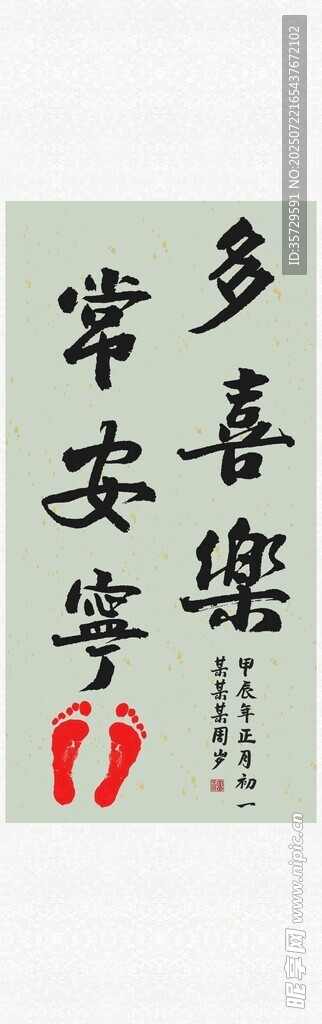 多喜樂
常安寧
甲辰年正月初一
某某某周岁
ID:35729591 NO:20250722165437672102
昵享网 www.nipic.cn